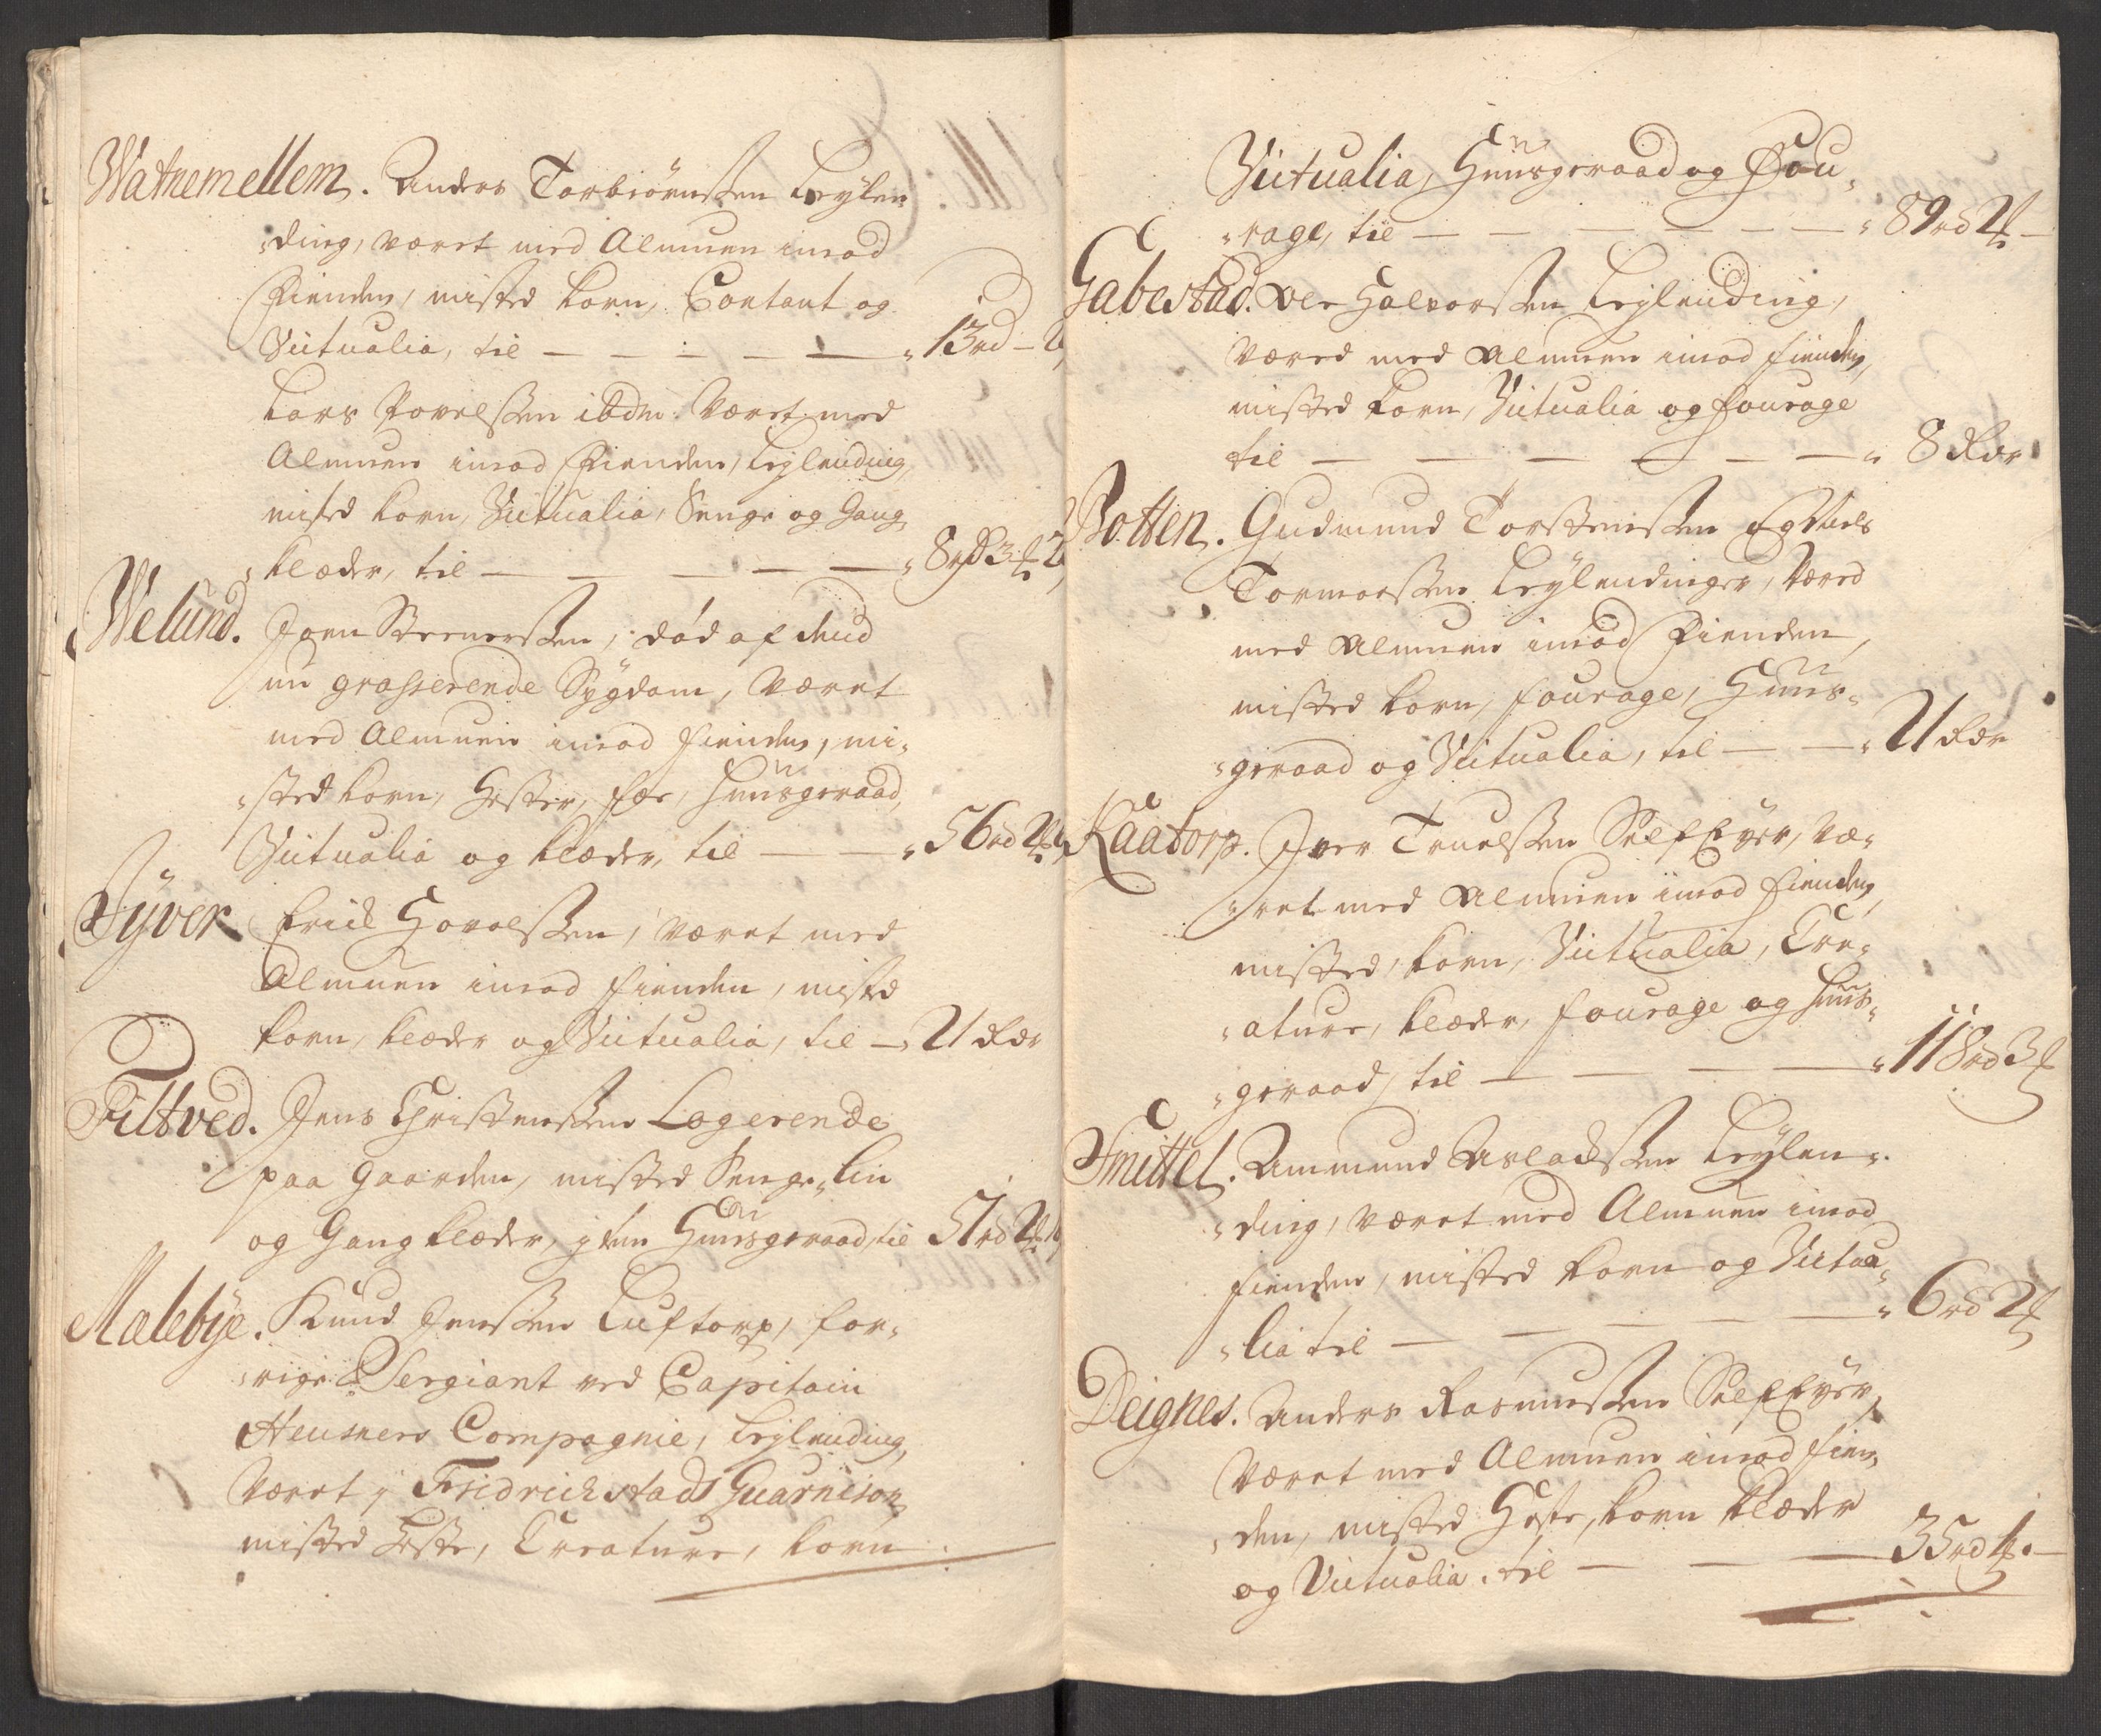 Watnemellem. Anders Torbiörnssen Leÿlen
"ding, været med Almuen imod
Fienden, misted korn, Contant og
Victualia, til — — — — — „ 13rd —
Lars Povelssen ibdm. Været med
Almuen imod Fienden, Leÿlending,
misted korn, Victualia, Senge og Gang
"klæder, til — — — — — „ 8rd 3
Welund. Joen Steenerssen, död af dend
nu grasserende Sÿgdom, Været
med Almuen imod fienden, mi„
"sted korn, Hester, fæe, Huusgeraad,
Victualia og klæder, til — — „ 56rd 2
Tyver Erich Hovelssen, været med
Almuen imod fienden, misted
korn, klæder og Victualia, til — 21 rdr
Filtved. Jens Christenssen Logerende
paa gaarden, misted Senge, Lin
og Gang klæder, jtem Huusgeraad, til 51rd 2
Malebÿe. Knud Jenssen Luftorp, for„
"rige Sergiant ved Capitain
Heusners Compagnie, Leÿlending,
Været j Fridrichstads Guarnison,
misted Heste, Creature, korn

Victualia, Huusgeraad og Fou„
"rage, til — — — — — — — „ 89rd 2 —
Gabestad. Ole Halvorssen Leÿlending,
Væred med Almuen imod fienden,
misted korn, Victualia og fourage
til — — — — — — „ 8 rdr
Botten. Gudmund Torstenssen og Niels
Tormoessen Leÿlendinger, Væred
med Almuen imod Fienden,
misted korn, fourage, Huus„
"geraad og Victualia, til — — „ 21 rdr
Kaatorp. Iver Truelssen Self Eÿer, Væ„
"ret med Almuen imod fienden,
misted, korn, Victualia, Cre„
"ature, klæder, fourage og Huus„
"geraad, til — — — — „ 118rd 3
Smittel. Ammund Aslachssen Leÿlen„
"ding, været med Almuen imod
fienden, misted korn og Victua„
"lia til — — — — — „ 6rd 2
Deignes. Anders Rasmussen Self Eÿer,
Været med Almuen imod fien„
"den, misted Heste, korn klæder
og Victualia. til — — — 35rd 1. —